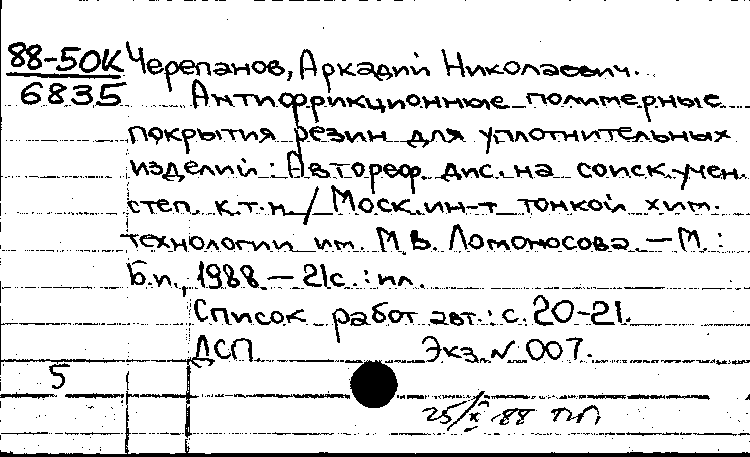 88-50К Черепанов, Аркадий Николаевич.
6835 Антифрикционные полимерные
покрытия резин для уплотнительных
изделий : Автореф. дис. на соиск. учен.
степ. к.т.н. / Моск. ин-т тонкой хим.
технологии им. М.В. Ломоносова. — М. :
Б.и., 1988. — 21с. : ил.
Список работ авт. : с. 20-21.
ДСП. Экз. N 007.
5
25/X 88